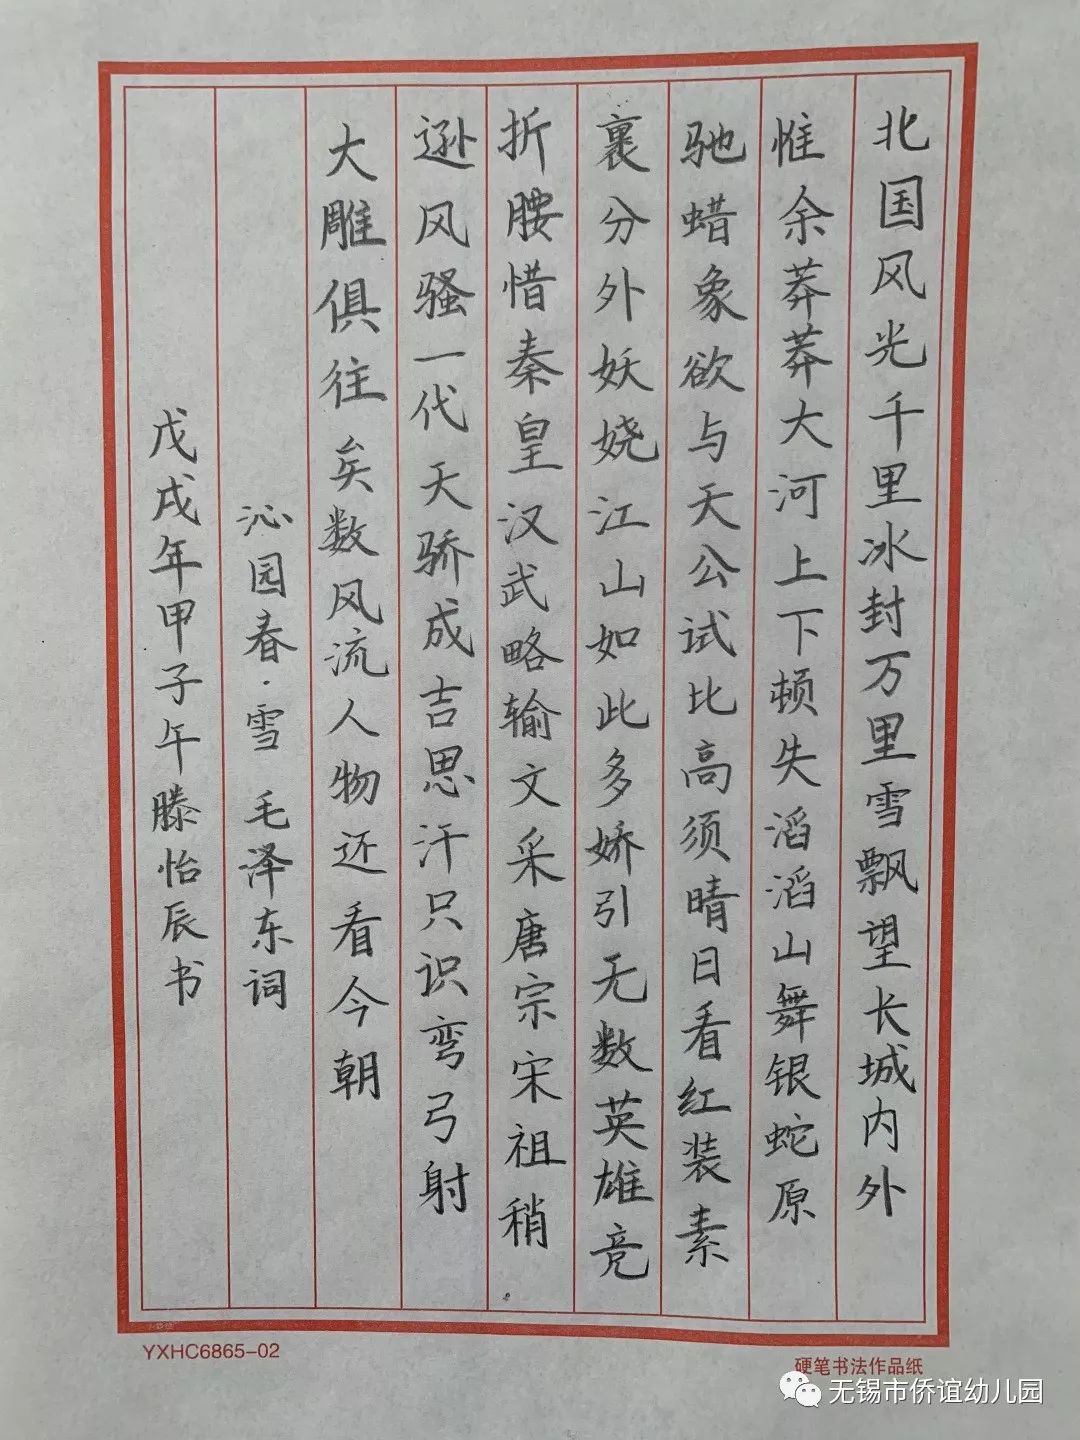 北国风光千里冰封万里雪飘望长城内外
惟余莽莽大河上下顿失滔滔山舞银蛇原
驰蜡象欲与天公试比高须晴日看红装素
裹分外妖娆江山如此多娇引无数英雄竞
折腰惜秦皇汉武略输文采唐宗宋祖稍
逊风骚一代天骄成吉思汗只识弯弓射
大雕俱往矣数风流人物还看今朝
沁园春·雪 毛泽东词
戊戌年甲子午滕怡辰书
YXHC6865-02
硬笔书法作品纸
无锡市侨谊幼儿园